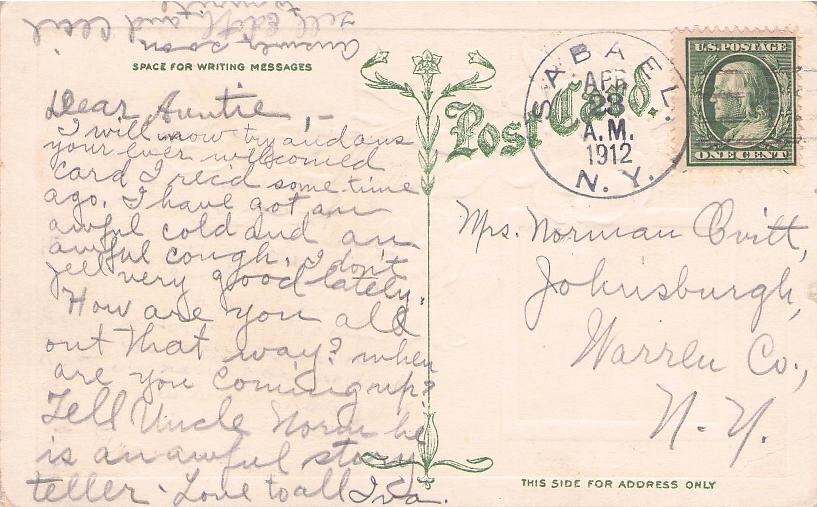 SPACE FOR WRITING MESSAGES
Dear Auntie,-
I will now try and ans
your ever wellcomed
card I rec'd some time
ago. I have got an
awful cold and an
awful cough. I don't
feel very good lately.
How are you all
out that way? when
are you coming up?
Tell Uncle Norm he
is an awful story
teller. Love to all Iva.
answer soon
Tell Edith and Cecil
to write
Post Card.
SABAEL.
APR
23
A.M.
1912
N.Y.
U.S. POSTAGE
ONE CENT
Mrs. Norman Ovitt,
Johnsburgh,
Warren Co.,
N.Y.
THIS SIDE FOR ADDRESS ONLY